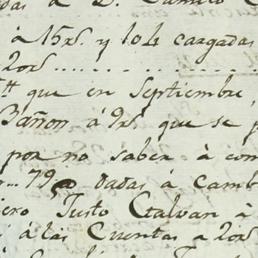 à 15rs. y 104 cargadas
20rs
que en Septiembre,
Bañon à 9rs. que se
por no saber à com
79 dadas à camb
Justo Galvan à
à las Cuentas a 20rs